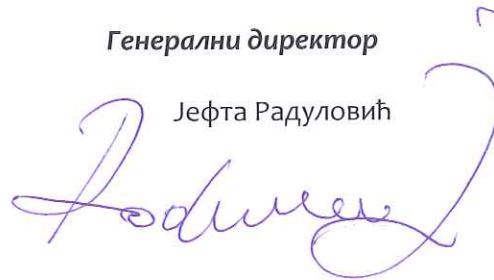 Генерални директор
Јефта Радуловић